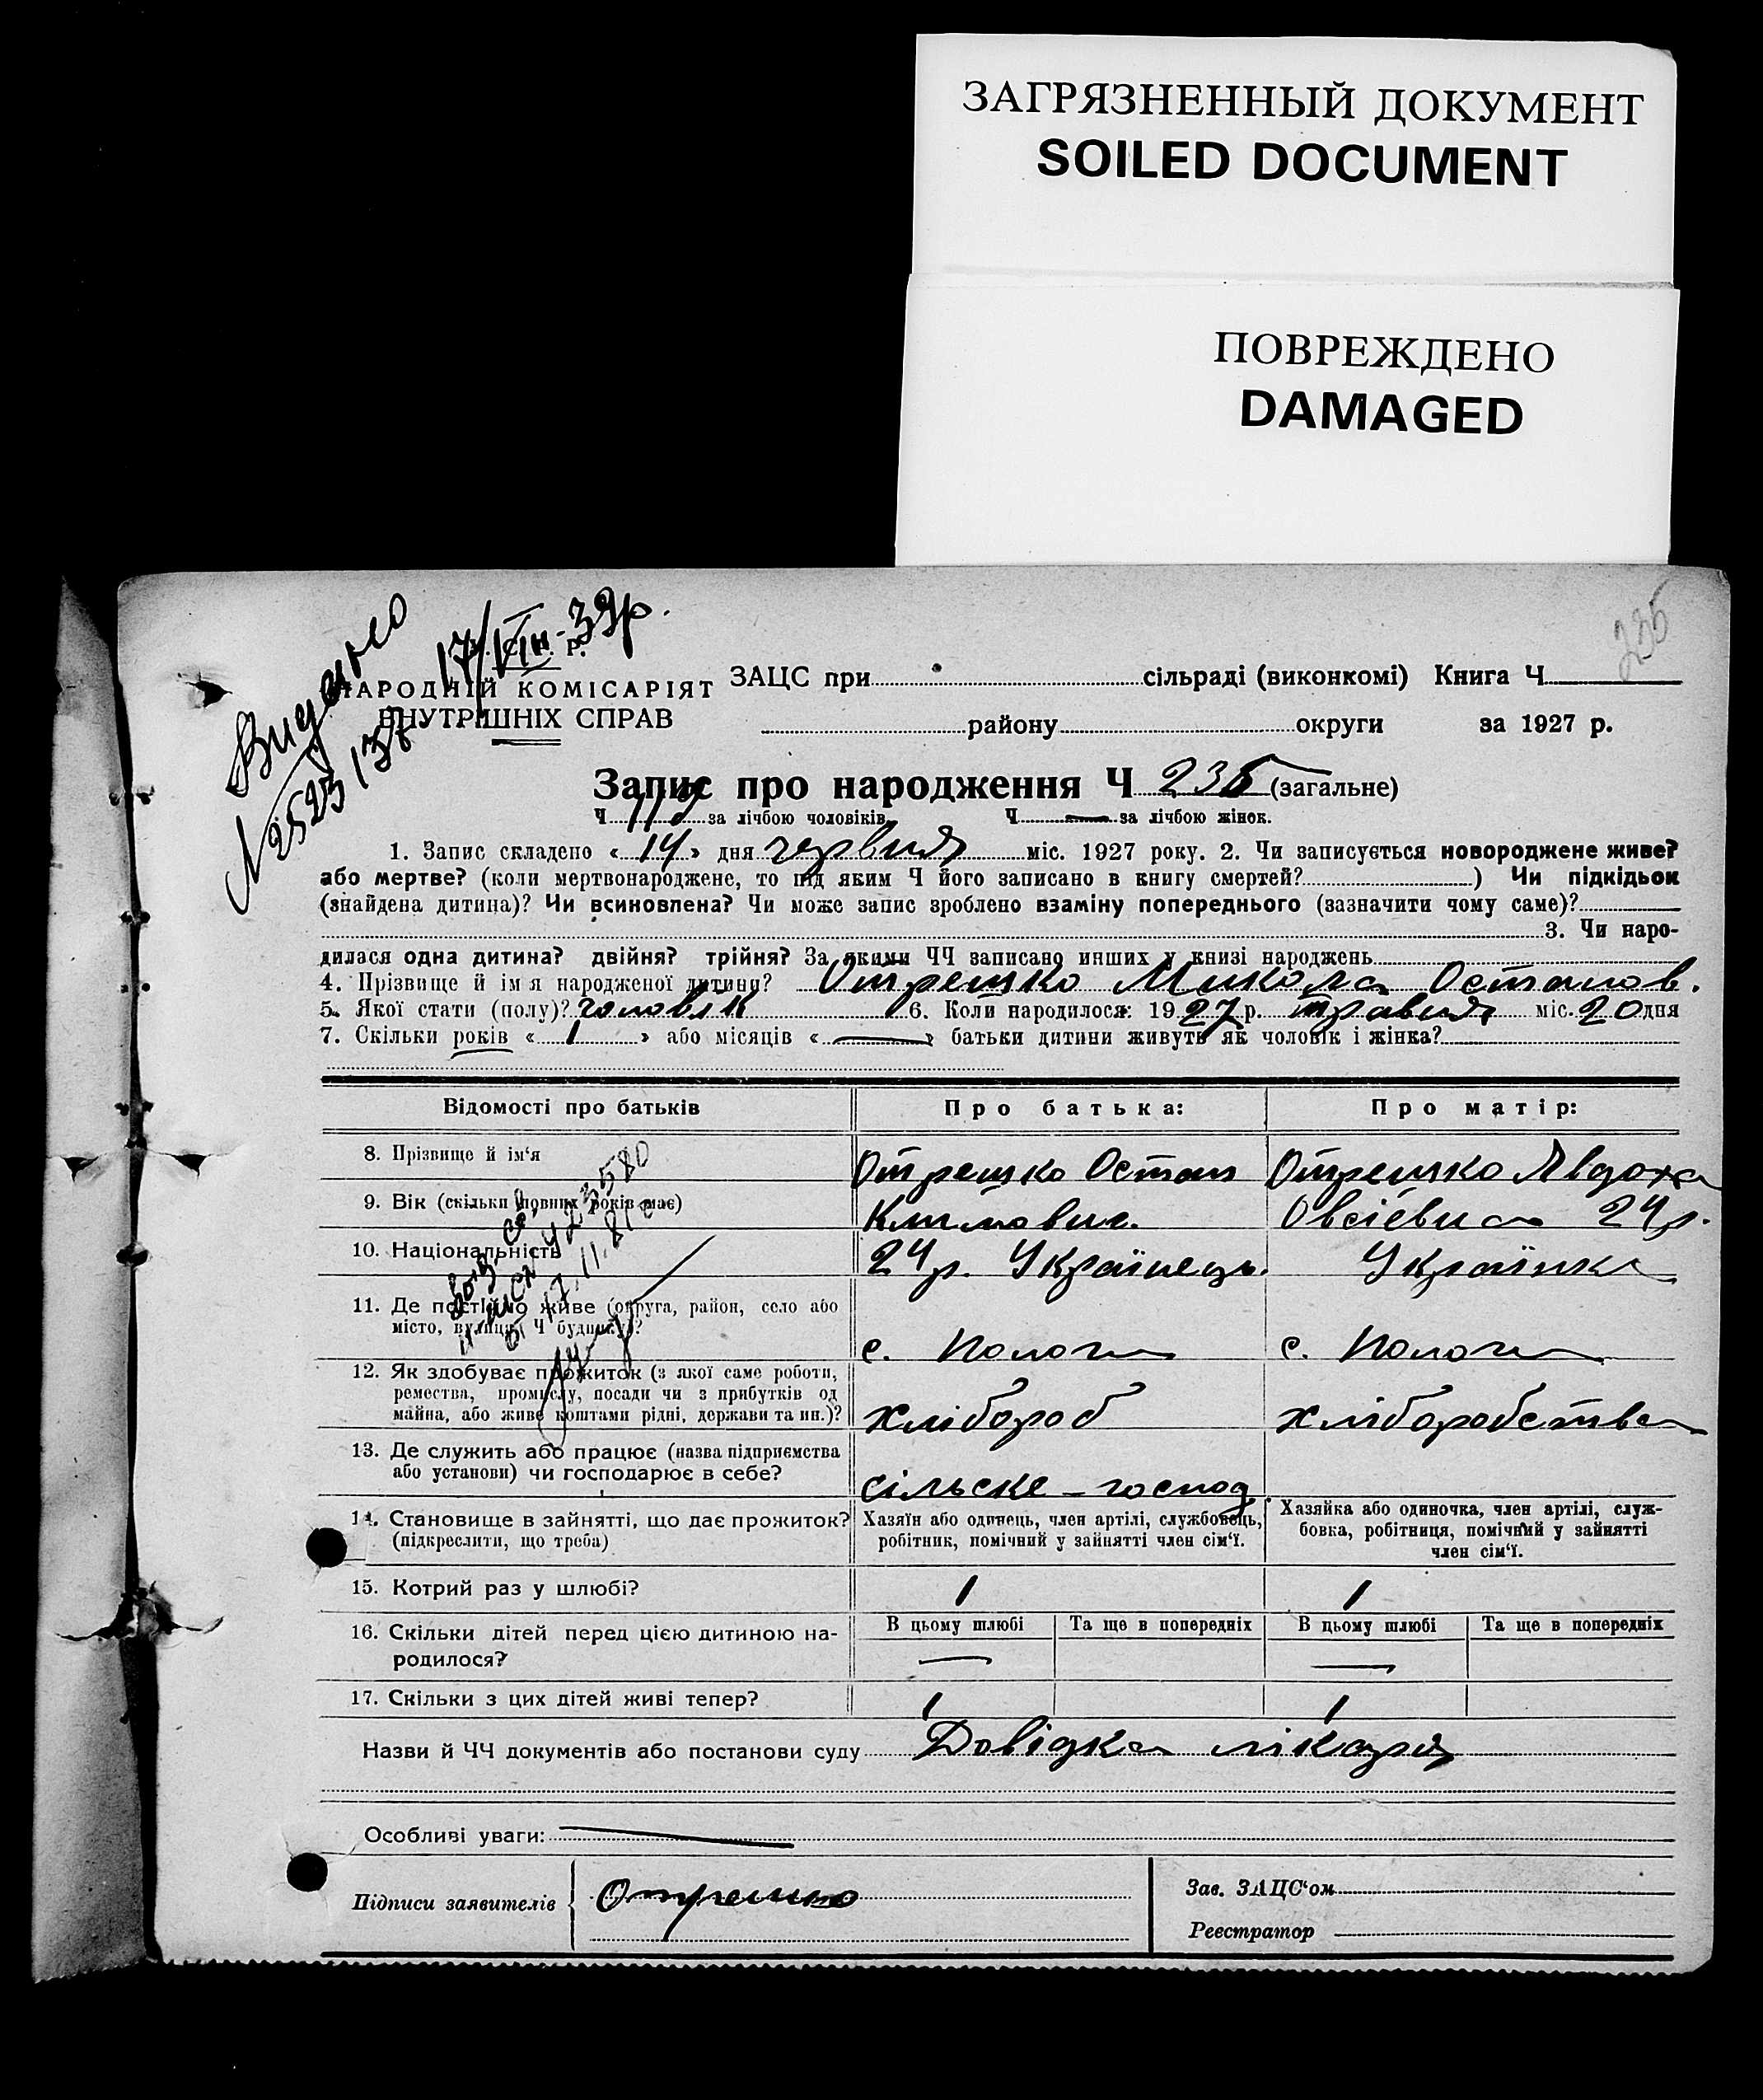 ЗАГРЯЗНЕННЫЙ ДОКУМЕНТ
SOILED DOCUMENT
ПОВРЕЖДЕНО
DAMAGED
235
Видано 17/VIII-39р.
N 2523/37
НАРОДНІЙ КОМІСАРІЯТ
ВНУТРІШНІХ СПРАВ
ЗАЦС при сільраді (виконкомі) Книга Ч
району округи за 1927 р.
Запис про народження Ч 235 (загальне)
Ч за лічбою чоловіків. Ч — за лічбою жінок.
1. Запис складено « 14 » дня червня міс. 1927 року. 2. Чи записується новороджене живе?
або мертве? (коли мертвонароджене, то під яким Ч його записано в книгу смертей? ) Чи підкідьок
(знайдена дитина)? Чи всиновлена? Чи може запис зроблено взаміну попереднього (зазначити чому саме)?
3. Чи наро-
дилася одна дитина? двійня? трійня? За якими ЧЧ записано инших у книзі народжень
4. Прізвище й імʼя народженої дитини? Отрешко Микола Остапов.
5. Якої стати (полу)? чоловік 6. Коли народилося: 1927 р. травня міс. 20 дня
7. Скільки років « 1 » або місяців « — » батьки дитини живуть як чоловік і жінка?
Відомості про батьків Про батька: Про матір:
8. Прізвище й ім‘я Отрешко Остап Отрешко Явдоха
9. Вік (скільки повних років має) Климович. Овсіевна 24 р.
10. Національність 24 р. Українець. Українка
11. Де постійно живе (округа, район, село або
місто, вулиця, Ч будинку)? с. Пологи с. Пологи
12. Як здобуває прожиток (з якої саме роботи,
ремества, промислу, посади чи з прибутків од
майна, або живе коштами рідні, держави та ин.)? хлібороб хліборобства
13. Де служить або працює (назва підприємства
або установи) чи господарює в себе? сільске - господ
14. Становище в зайнятті, що дає прожиток? Хазяїн або одинець, член артілі, службовець, Хазяйка або одиночка, член артілі, служ-
(підкреслити, що треба) робітник, помічний у зайнятті член сім‘ї. бовка, робітниця, помічний у зайнятті
член сім‘ї.
15. Котрий раз у шлюбі? 1 1
16. Скільки дітей перед цією дитиною на- В цьому шлюбі Та ще в попередніх В цьому шлюбі Та ще в попередніх
родилося? — —
17. Скільки з цих дітей живі тепер? 1 1
Назви й ЧЧ документів або постанови суду Довідка лікаря
Особливі уваги: —
Підписи заявителів Отрешко Зав. ЗАЦС‘ом
Реєстратор